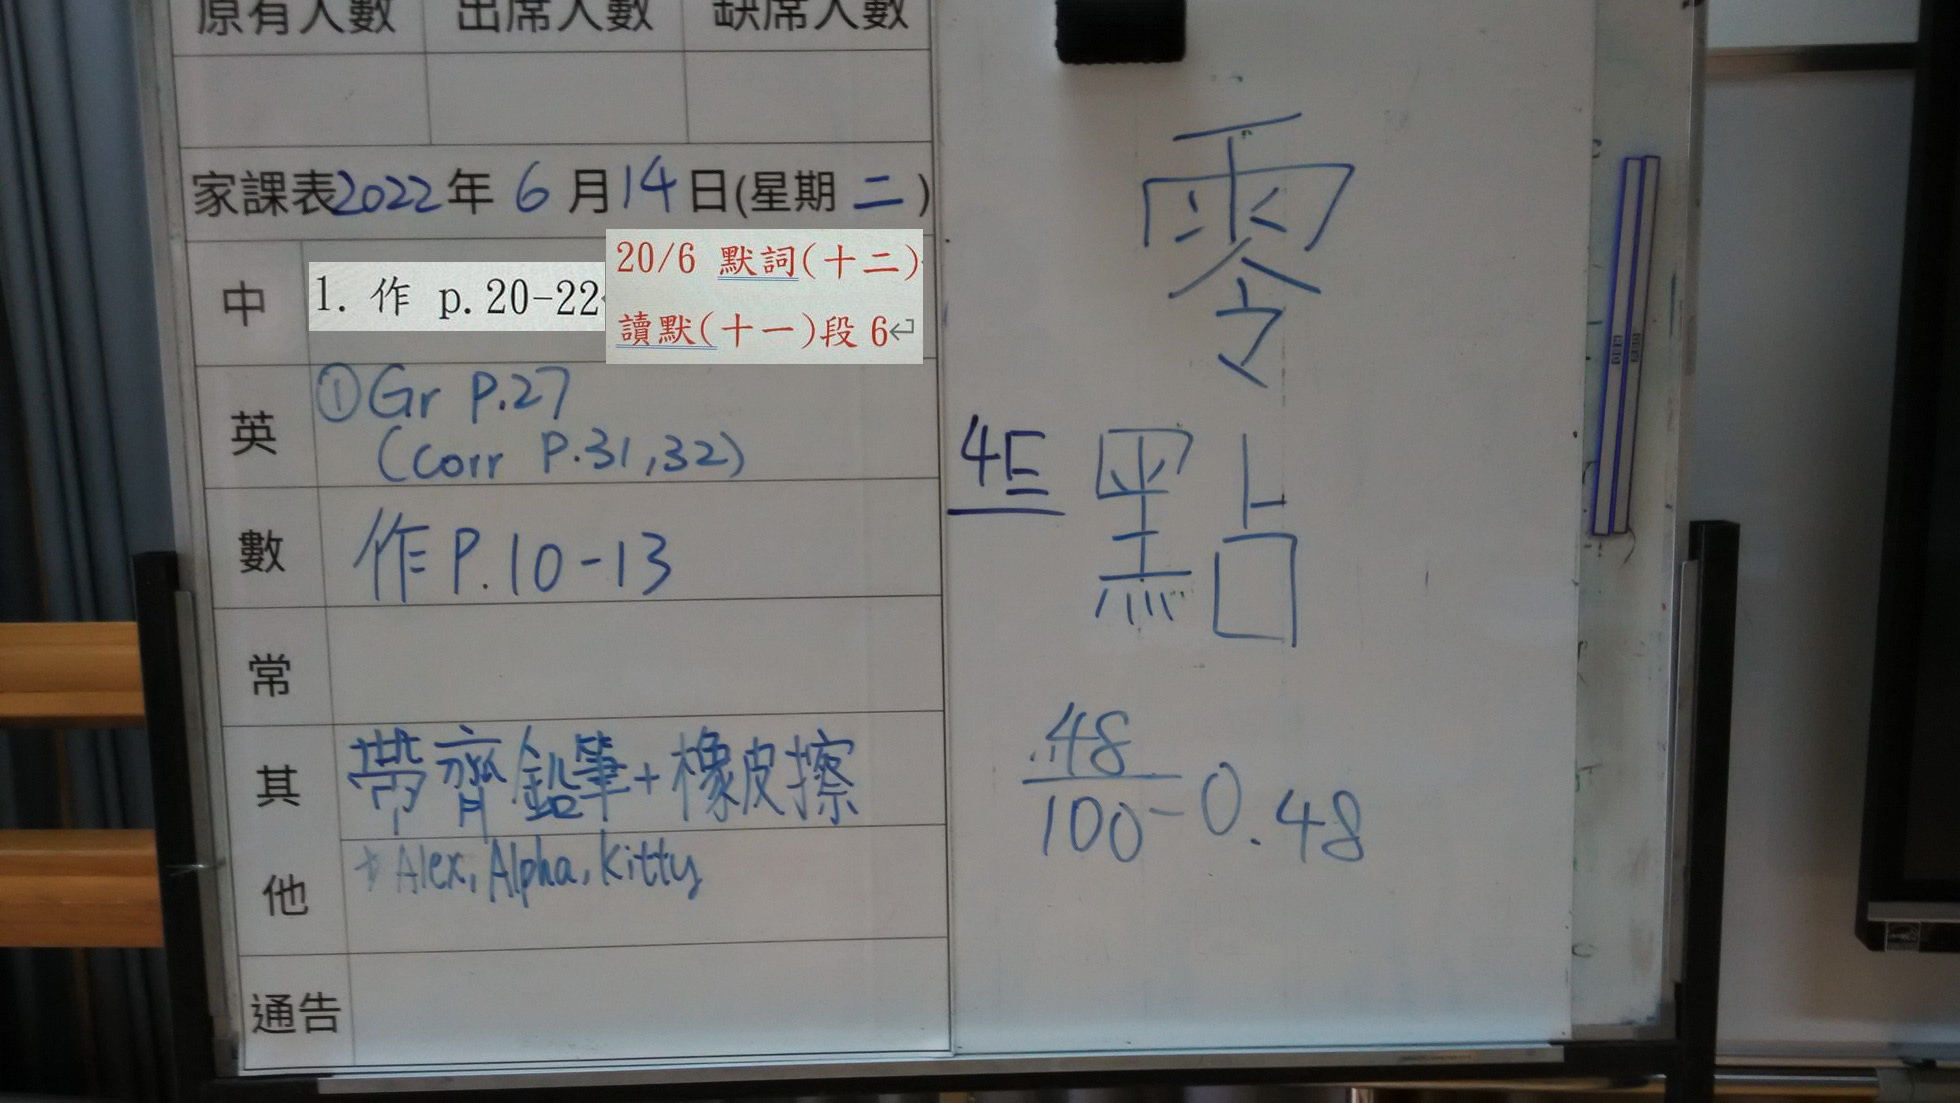 原有人數 出席人數 缺席人數
家課表2022年 6 月14日(星期 二 )
中
1. 作 p.20-22
20/6 默詞(十二)
讀默(十一)段 6↵
英
①Gr P.27
(Corr P.31,32)
數
作P.10-13
常
其
他
帶齊鉛筆+橡皮擦
* Alex, Alpha, Kitty
通告
零
4E
點
48
100
-0.48